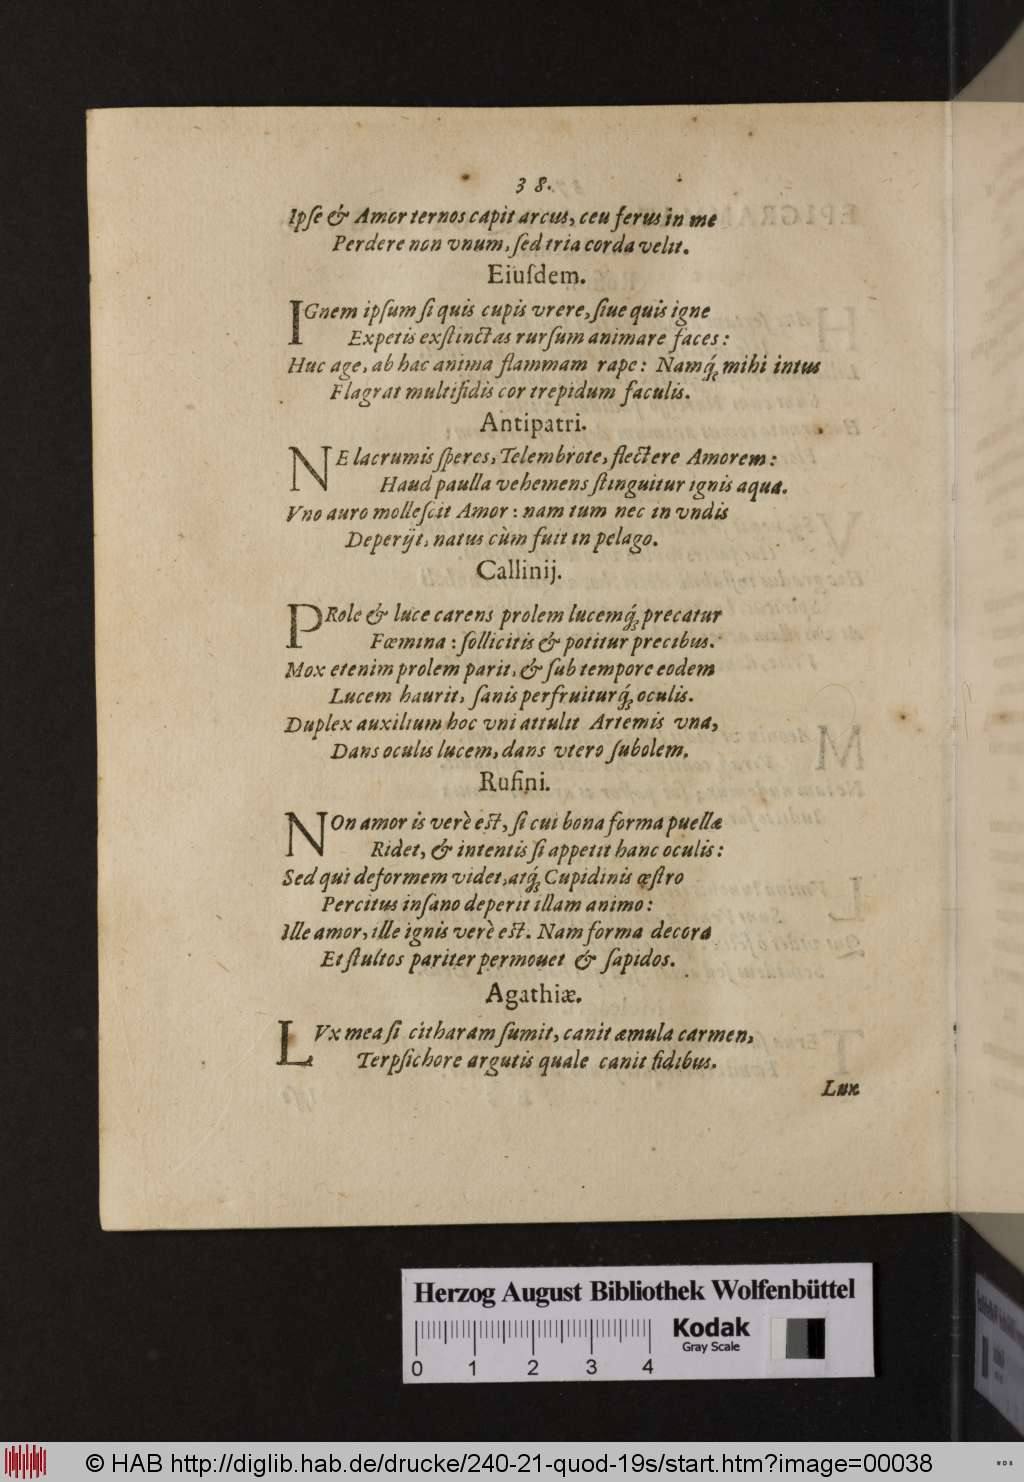 38.
Ipſe & Amor ternos capit arcus, ceu ferus in me
Perdere non vnum, ſed tria corda velit.
Eiuſdem.
IGnem ipſum ſi quis cupis vrere, ſiue quis igne
Expetis exſtinctas rurſum animare faces:
Huc age, ab hac anima flammam rape: Namq́ꝫ mihi intus
Flagrat multifidis cor trepidum faculis.
Antipatri.
NE lacrumis ſperes, Telembrote, flectere Amorem:
Haud paulla vehemens ſtinguitur ignis aqua.
Vno auro molleſcit Amor: nam tum nec in vndis
Deperijt, natus cùm fuit in pelago.
Callinij.
PRole & luce carens prolem lucemq́ꝫ precatur
Fœmina: ſollicitis & potitur precibus.
Mox etenim prolem parit, & ſub tempore eodem
Lucem haurit, ſanis perfruiturq́ꝫ oculis.
Duplex auxilium hoc vni attulit Artemis vna,
Dans oculis lucem, dans vtero ſubolem.
Rufini.
NOn amor is verè eſt, ſi cui bona forma puellæ
Ridet, & intentis ſi appetit hanc oculis:
Sed qui deformem videt, atq́ꝫ Cupidinis æſtro
Percitus inſano deperit illam animo:
Ille amor, ille ignis verè eſt. Nam forma decora
Et ſtultos pariter permouet & ſapidos.
Agathiæ.
LVx mea ſi citharam ſumit, canit æmula carmen,
Terpſichore argutis quale canit fidibus.
Lux
Herzog August Bibliothek Wolfenbüttel
Kodak
Gray Scale
0 1 2 3 4
© HAB http://diglib.hab.de/drucke/240-21-quod-19s/start.htm?image=00038